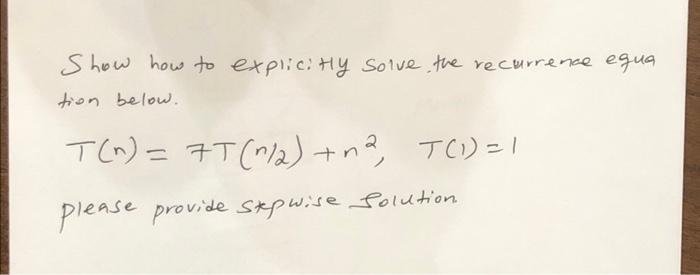 Show how to explicitly solve the recurrence equa
tion below.
T(n) = 7T(n/2) + n², T(1) = 1
please provide stepwise solution